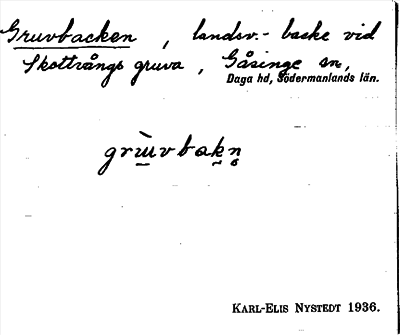 Gruvbacken, landsv.- backe vid
Skottvångs gruva, Gåsinge sn,
Daga hd, Södermanlands län.
grùvbakn̥
KARL-ELIS NYSTEDT 1936.